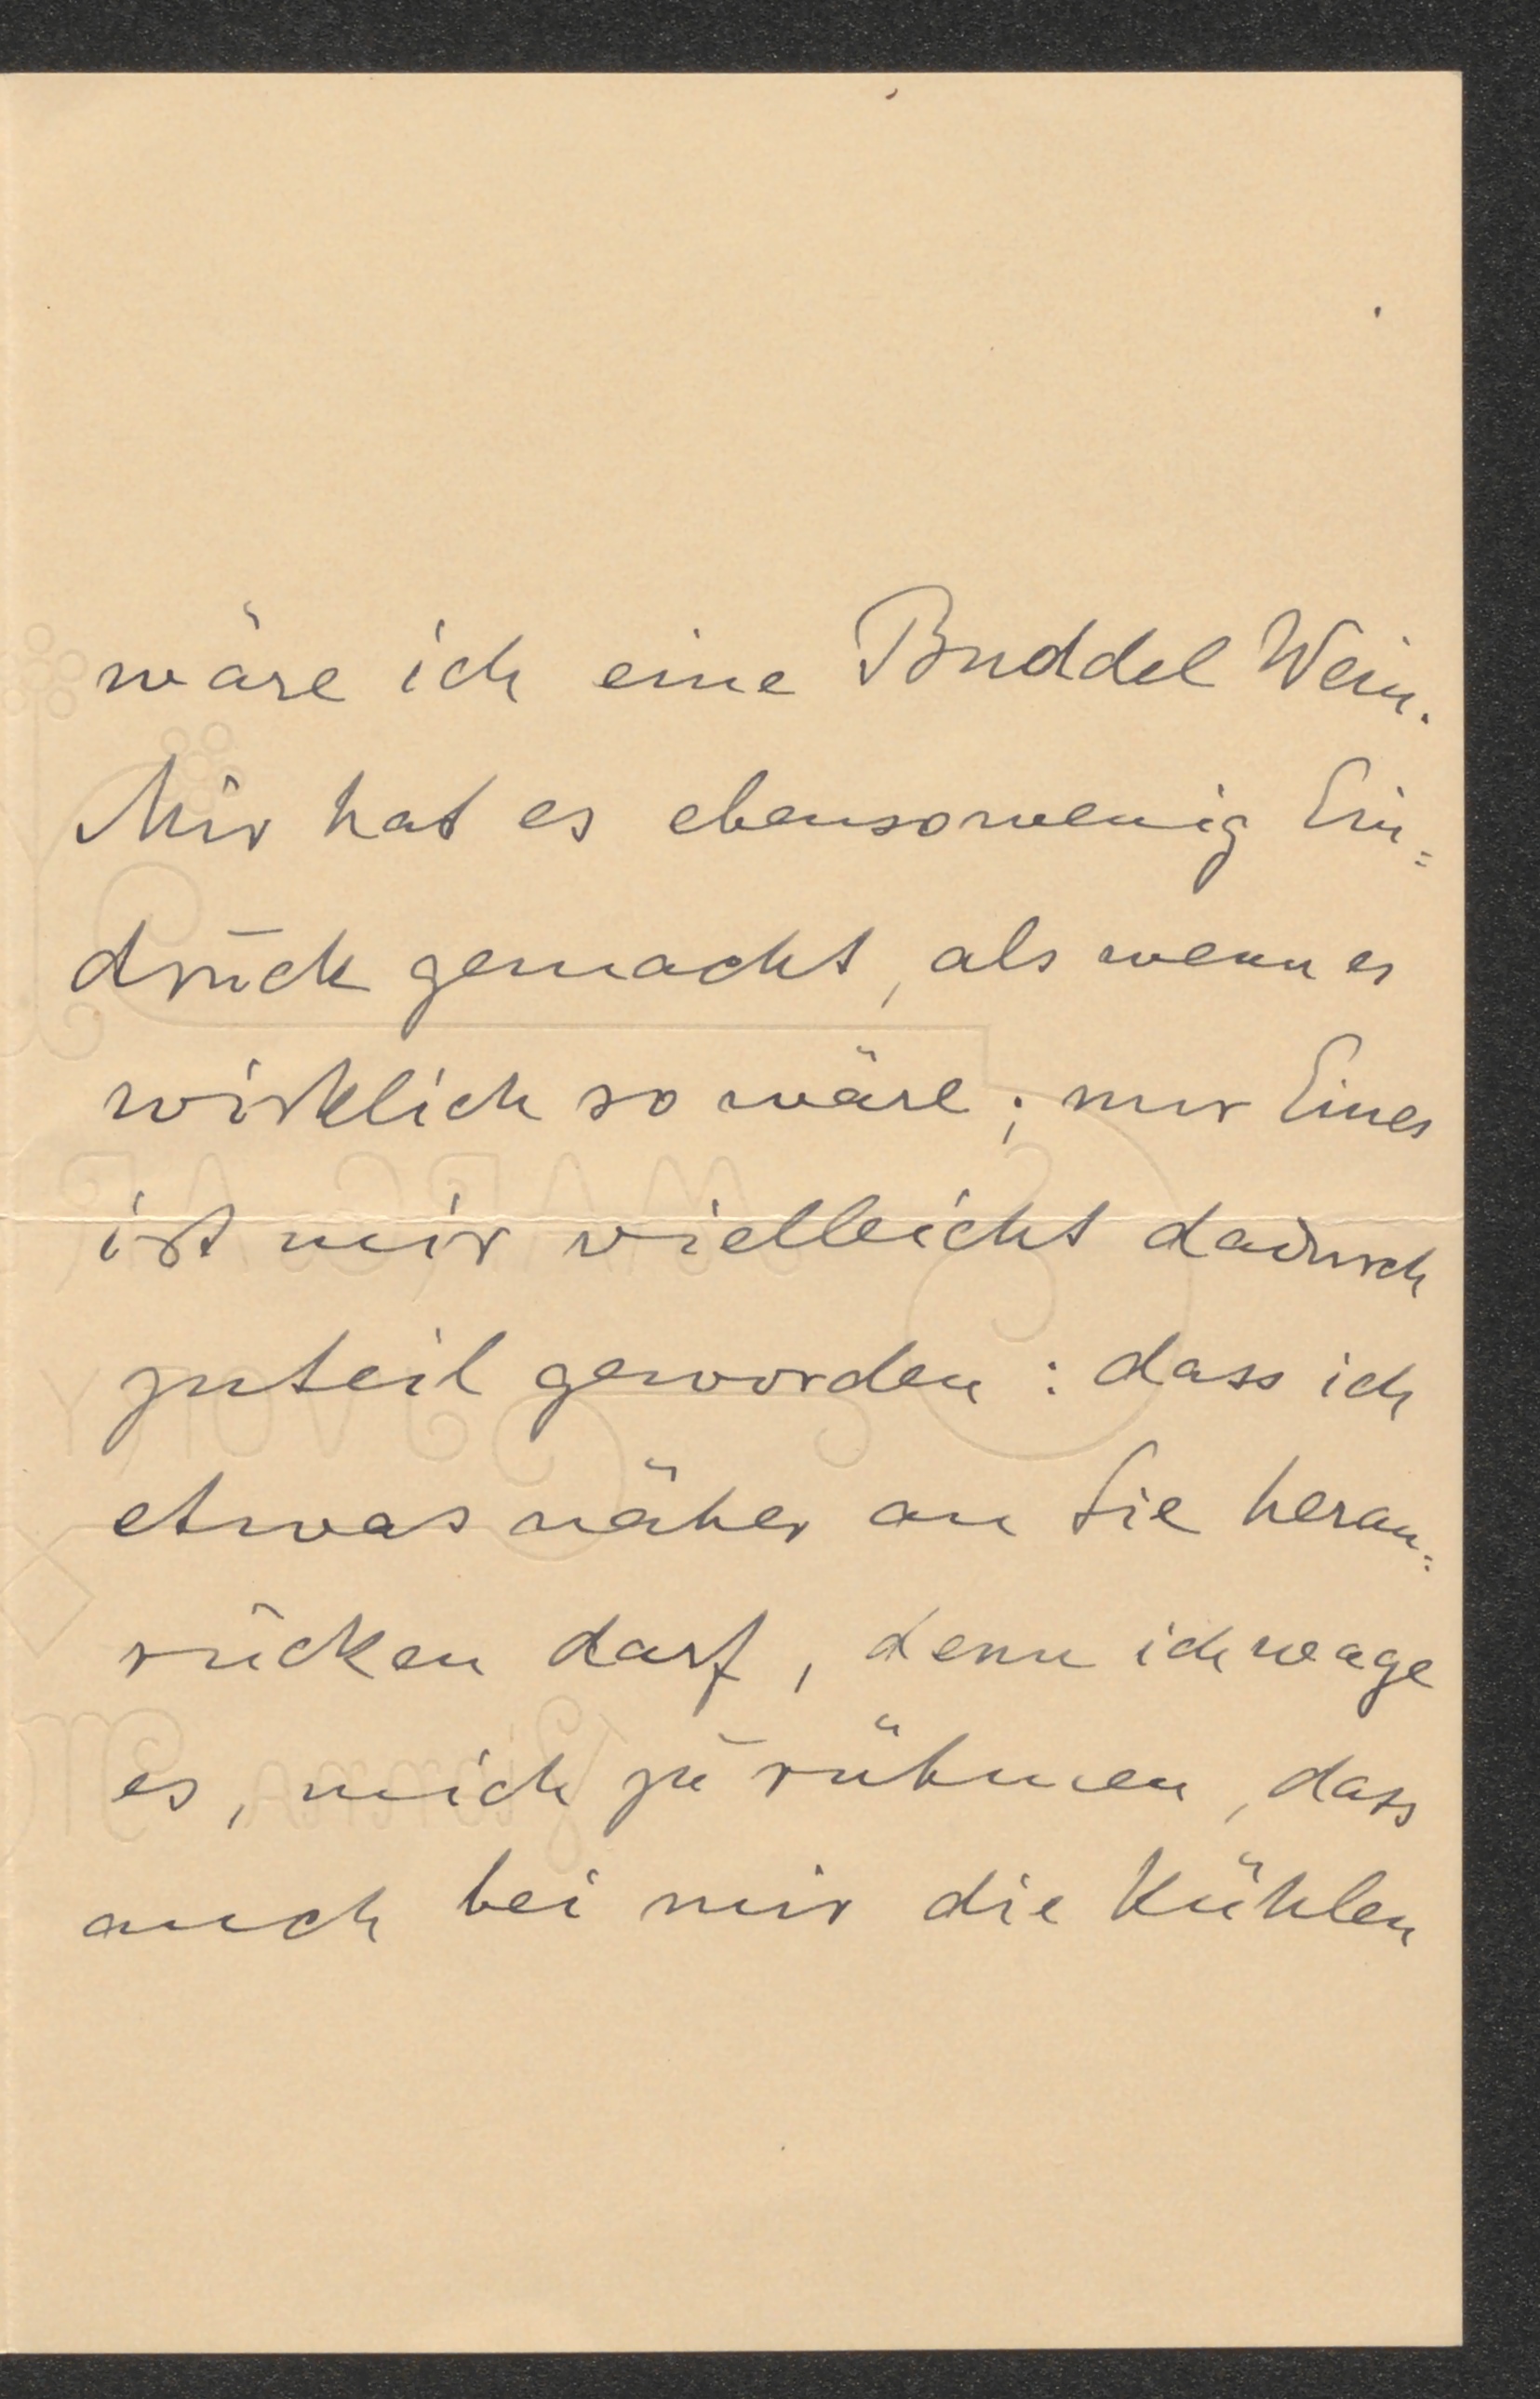 wäre ich eine Buddel Wein.
Mir hat es ebensowenig Ein=
druck gemacht, als wenn es
wirklich so wäre; nur Eines
ist mir vielleicht dadurch
zuteil geworden: dass ich
etwas näher an Sie heran=
rücken darf, denn ich wage
es, mich zu rühmen, dass
auch bei mir die Kühlen